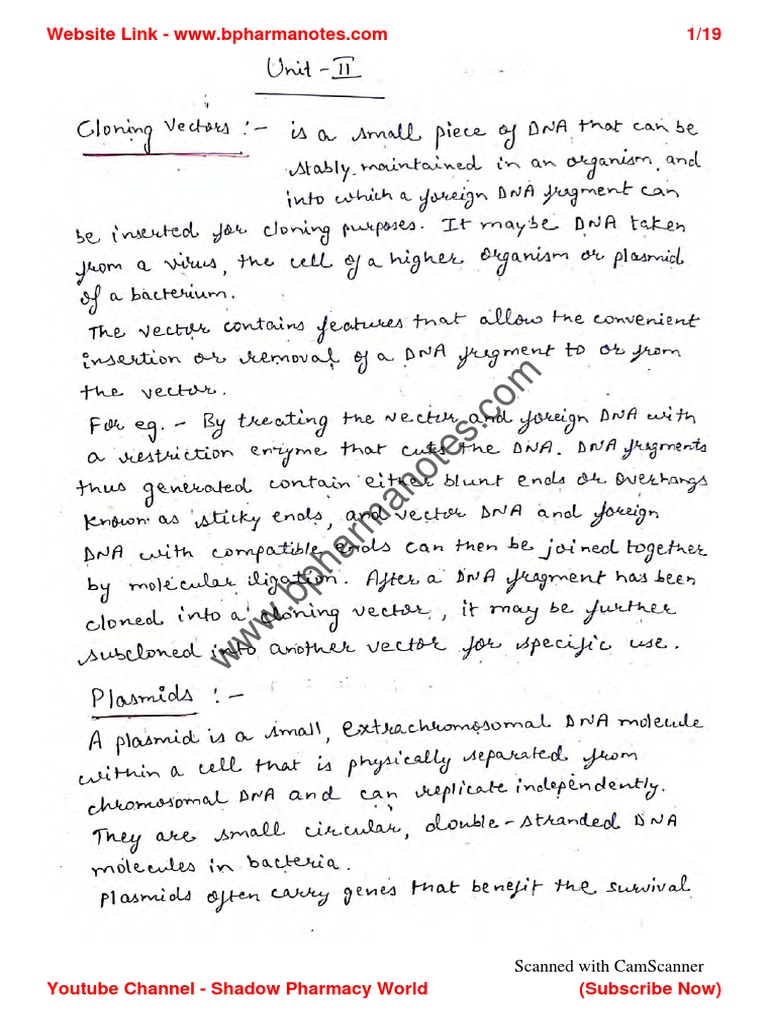 Website Link - www.bpharmanotes.com 1/19
Unit - II
Cloning Vectors :- is a small piece of DNA that can be
stably maintained in an organism, and
into which a foreign DNA fregment can
be inserted for cloning purposes. It maybe DNA taken
from a virus, the cell of a higher organism or plasmid
of a bacterium.
The vector contains features that allow the convenient
insertion or removal of a DNA fregment to or from
the vector.
For eg. - By treating the vector and foreign DNA with
a restriction enzyme that cuts the DNA. DNA fregments
thus generated contain either blunt ends or overhangs
known as sticky ends, and vector DNA and foreign
DNA with compatible ends can then be joined together
by molecular ligation. After a DNA fregment has been
cloned into a cloning vector, it may be further
subcloned into another vector for specific use.
www.bpharmanotes.com
Plasmids :-
A plasmid is a small, extrachromosomal DNA molecule
within a cell that is physically separated from
chromosomal DNA and can replicate independently.
They are small circular, double-stranded DNA
molecules in bacteria.
Plasmids often carry genes that benefit the survival
Scanned with CamScanner
Youtube Channel - Shadow Pharmacy World (Subscribe Now)